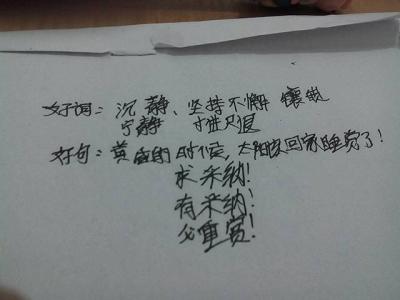 好词：沉静、坚持不懈 镶
宁静 寸进尺退
好句：黄昏的时候，太阳要回家睡觉了！
求采纳！
有采纳！
必重赏！